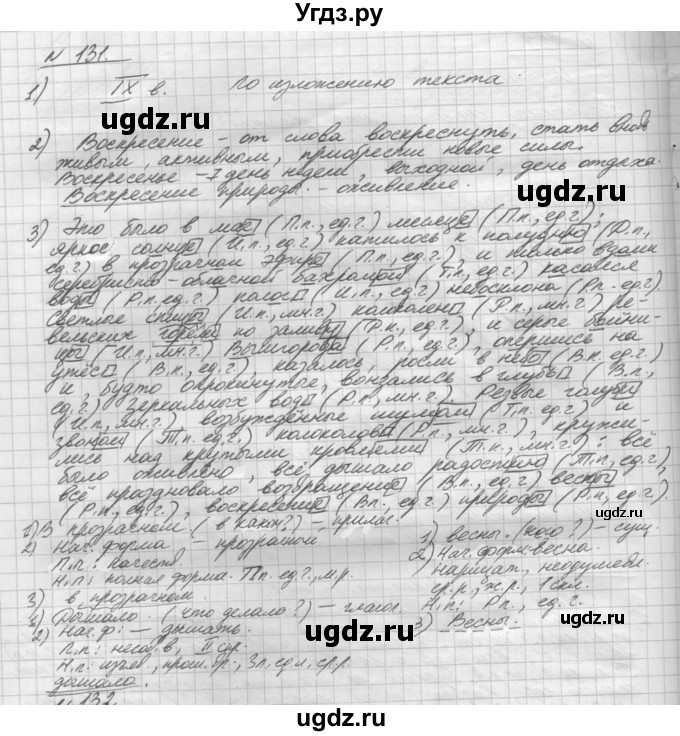 Угдз.ру
N 131.
1) IX в. По изложению текста.
ugdz.ru ugdz.ru
2) Воскресение - от слова воскреснуть, стать вновь
живым, активным, приобрести новые силы.
Воскресенье - 7 день недели, выходной, день отдыха.
Воскресение природы - оживление.
ugdz.ru ugdz.ru
3) Это было в мае (П.п., ед.ч.) месяце (П.п., ед.ч.);
яркое солнце (И.п., ед.ч.) катилось к полудню (Д.п.,
ед.ч.) в прозрачном эфире (П.п., ед.ч.), и только вдали
серебристо-облачной бахромой (Т.п., ед.ч.) касался
воды (Р.п. ед.ч.) полог (И.п., ед.ч.) небосклона (Рп. ед.ч.)
светлые спицы (И.п., мн.ч.) колоколен (Р.п., мн.ч.) ре-
вельских горели по заливу (Д.п., ед.ч.), и серые бойни-
цы (И.п., мн.ч.) Вышгорода (Р.п., ед.ч.), опершись на
утёс (В.п., ед.ч.), казалось, росли в небо (В.п., ед.ч.)
и, будто опрокинутые, вонзались в глубь (В.п.,
ед.ч.) зеркальных вод (Р.п., мн.ч.). Резвые голуби
(И.п., мн.ч.), возбуждённые шумом (Т.п. ед.ч.) и
звоном (Т.п. ед.ч.) колоколов (Р.п., мн.ч.), кружи-
лись над крутыми кровлями (Т.п., мн.ч.): всё
было оживлено, всё дышало радостию (Т.п., ед.ч.),
всё праздновало возвращение (В.п., ед.ч.) весны
(Р.п., ед.ч.), воскресение (Вп., ед.ч.) природы (Р.п., ед.ч.).
1) В прозрачном (в каком?) - прилаг.
2) Нач. форма - прозрачный
П.п: качеств.
Н.п: полная форма. Пп. ед.ч., м.р.
3) в прозрачном.
1) Дышало. (что делало?) - глагол.
2) Нач.ф: - дышать.
П.п: несов.в, II спр.
Н.п: изъяв., прош.вр., ед.ч, ср.р.
дышало.
1) весны. (чего?) - сущ.
2) Нач. форм-весна.
Нарицат., неодушевл.
ж.р., 1 скл.
Н.п: Рп., ед.ч.
3) Весны.
N 132.
ugdz.ru